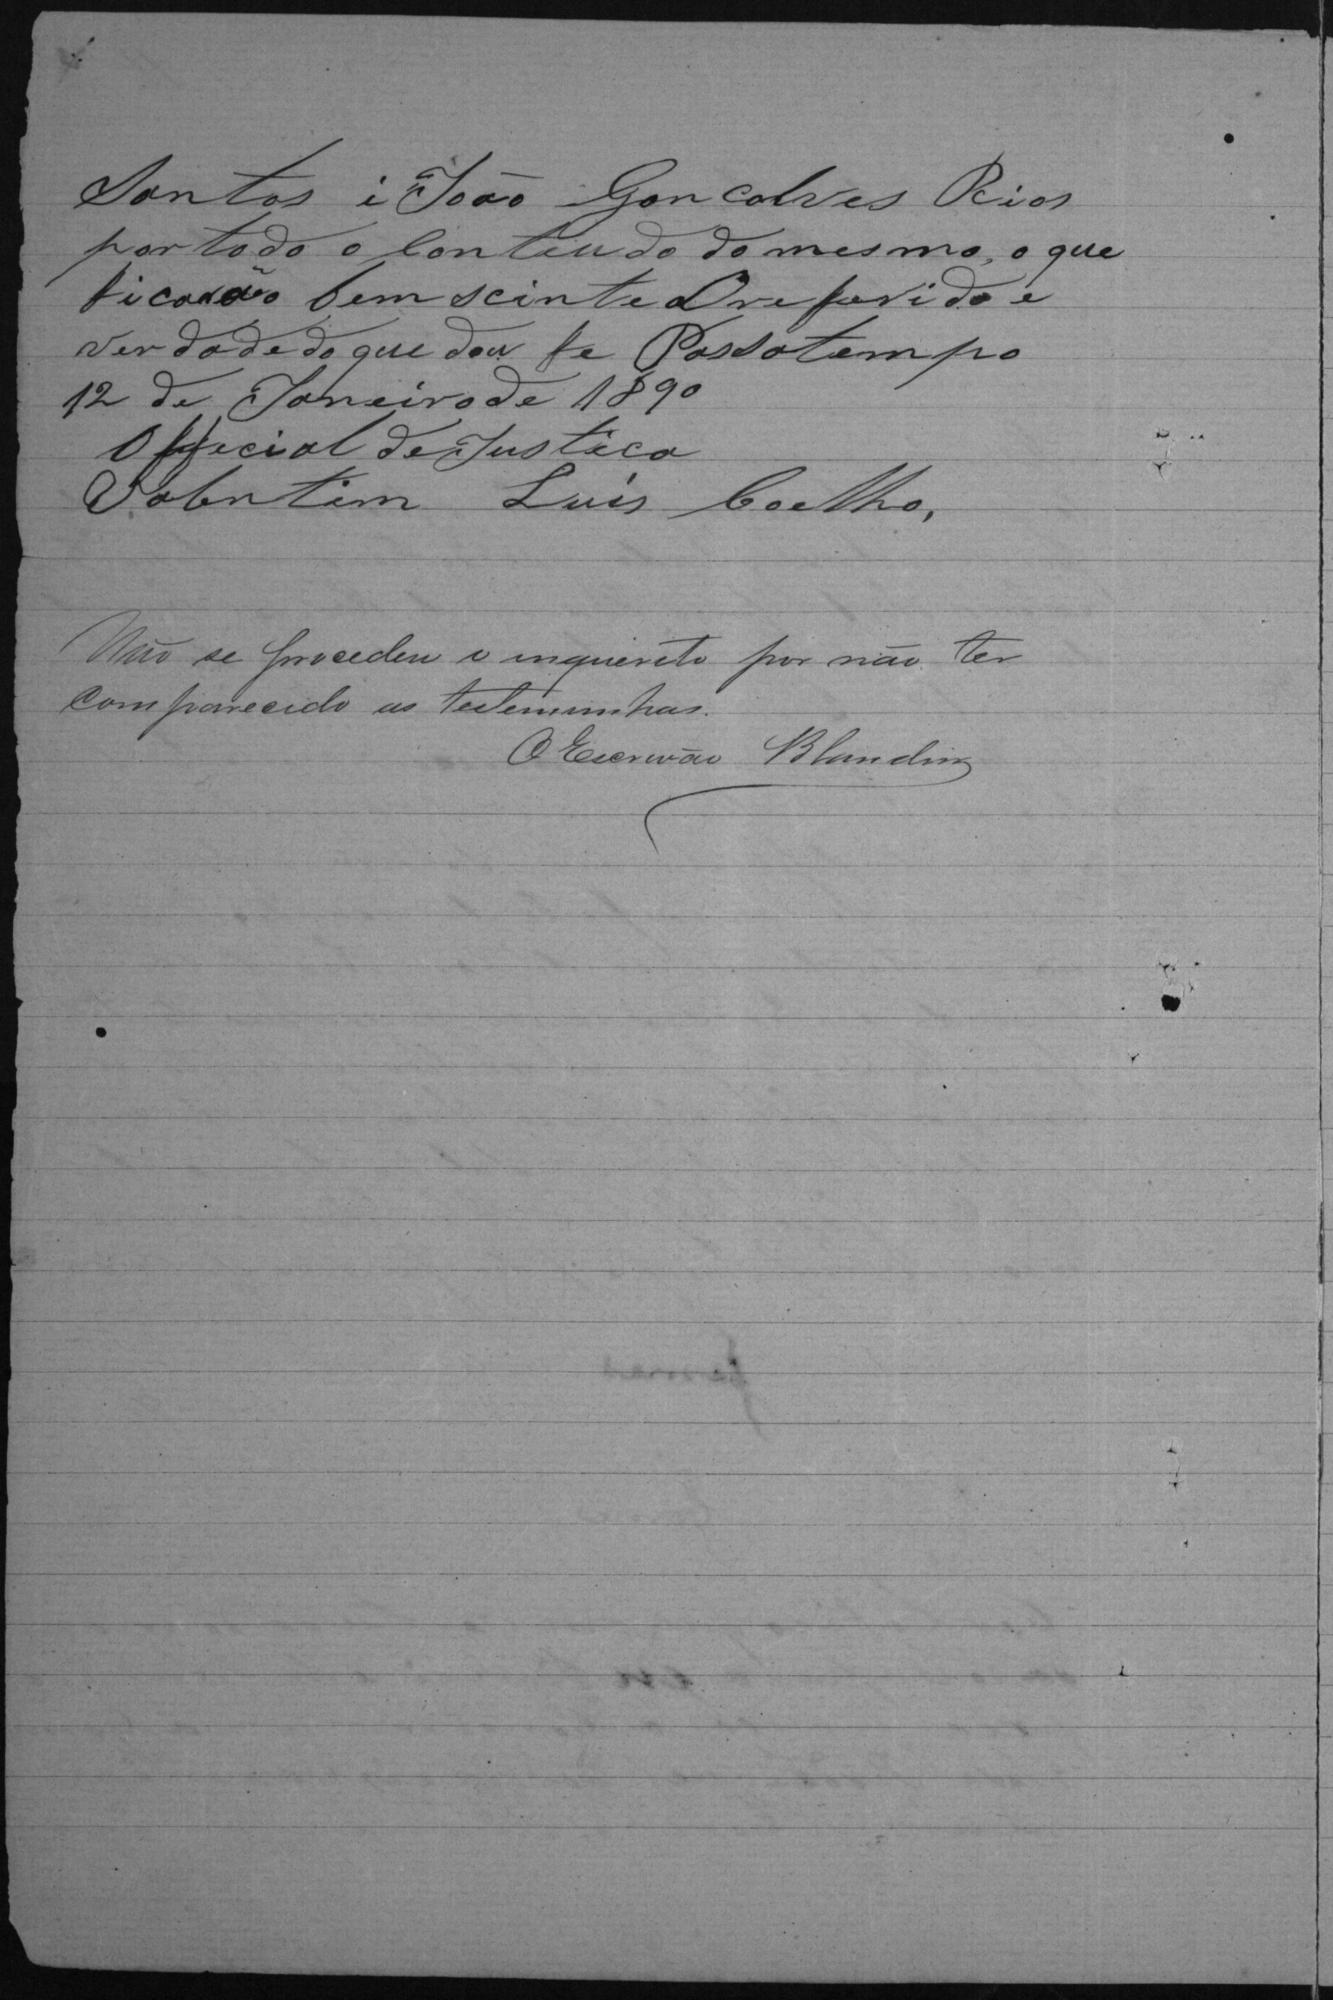 Santos i João Gonçalves Rios
por todo o conteudo do mesmo, o que
ficarão bem scinte O referido e
verdade do que dou fe Passatempo
12 de Janeiro de 1890
Official de Justica
Valentim Luis Coelho,
Não se procedeu o inquerito por não ter
comparecido as testemunhas.
O Escrivão Blandin